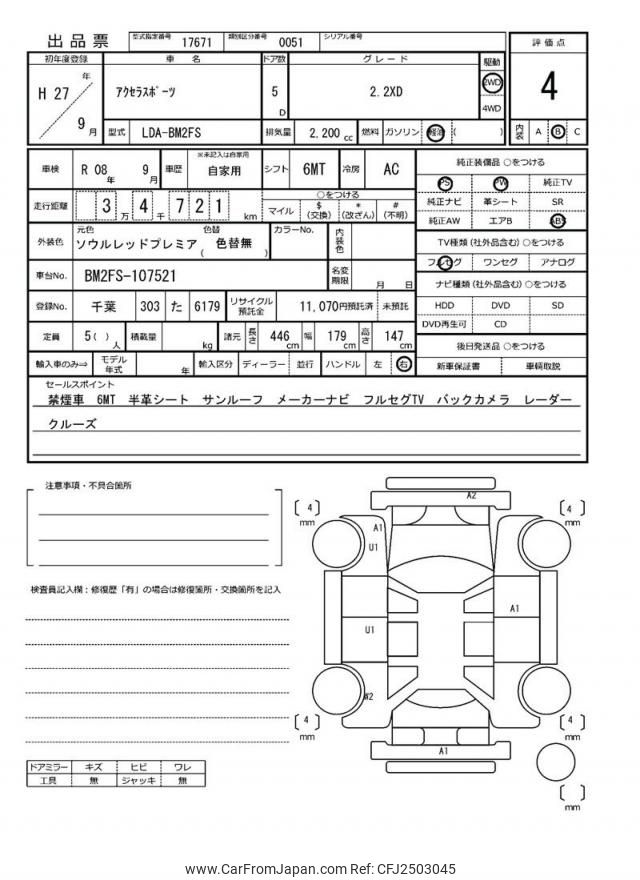 出品票 型式指定番号 17671 類別区分番号 0051 シリアル番号
初年度登録 車名 ドア数 グレード 駆動 評価点
H 27 年 9 月 アクセラスポーツ 5 D 2.2XD 2WD 4WD 4
型式 LDA-BM2FS 排気量 2,200 cc 燃料 ガソリン 軽油 ( ) 内装 A B C
車検 R 08 年 9 月 車歴 ※未記入は自家用 自家用 シフト 6MT 冷房 AC
純正装備品 ○をつける
PS PW 純正TV
純正ナビ 革シート SR
純正AW エアB ABS
走行距離 3 万 4 千 7 2 1 km
○をつける
マイル $ (交換) * (改ざん) # (不明)
TV種類 (社外品含む) ○をつける
フルセグ ワンセグ アナログ
外装色 元色 ソウルレッドプレミア 色替 ( 色替無 ) カラーNo. 内装色
車台No. BM2FS-107521 名変期限 月 日
ナビ種類 (社外品含む) ○をつける
HDD DVD SD
DVD再生可 CD
登録No. 千葉 303 た 6179 リサイクル預託金 11,070円預託済 未預託
定員 5 ( ) 人 積載量 kg 諸元 長さ 446 cm 幅 179 cm 高さ 147 cm
後日発送品 ○をつける
新車保証書 車輌取説
輸入車のみ⇒ モデル年式 年 輸入区分 ディーラー 並行 ハンドル 左 右
セールスポイント
禁煙車 6MT 半革シート サンルーフ メーカーナビ フルセグTV バックカメラ レーダー
クルーズ
注意事項・不具合箇所
検査員記入欄：修復歴「有」の場合は修復箇所・交換箇所を記入
ドアミラー キズ ヒビ ワレ
工具 無 ジャッキ 無
4 mm
A2
4 mm
A1
U1
A1
U1
W2
4 mm
A1
4 mm
mm
www.CarFromJapan.com Ref: CFJ2503045